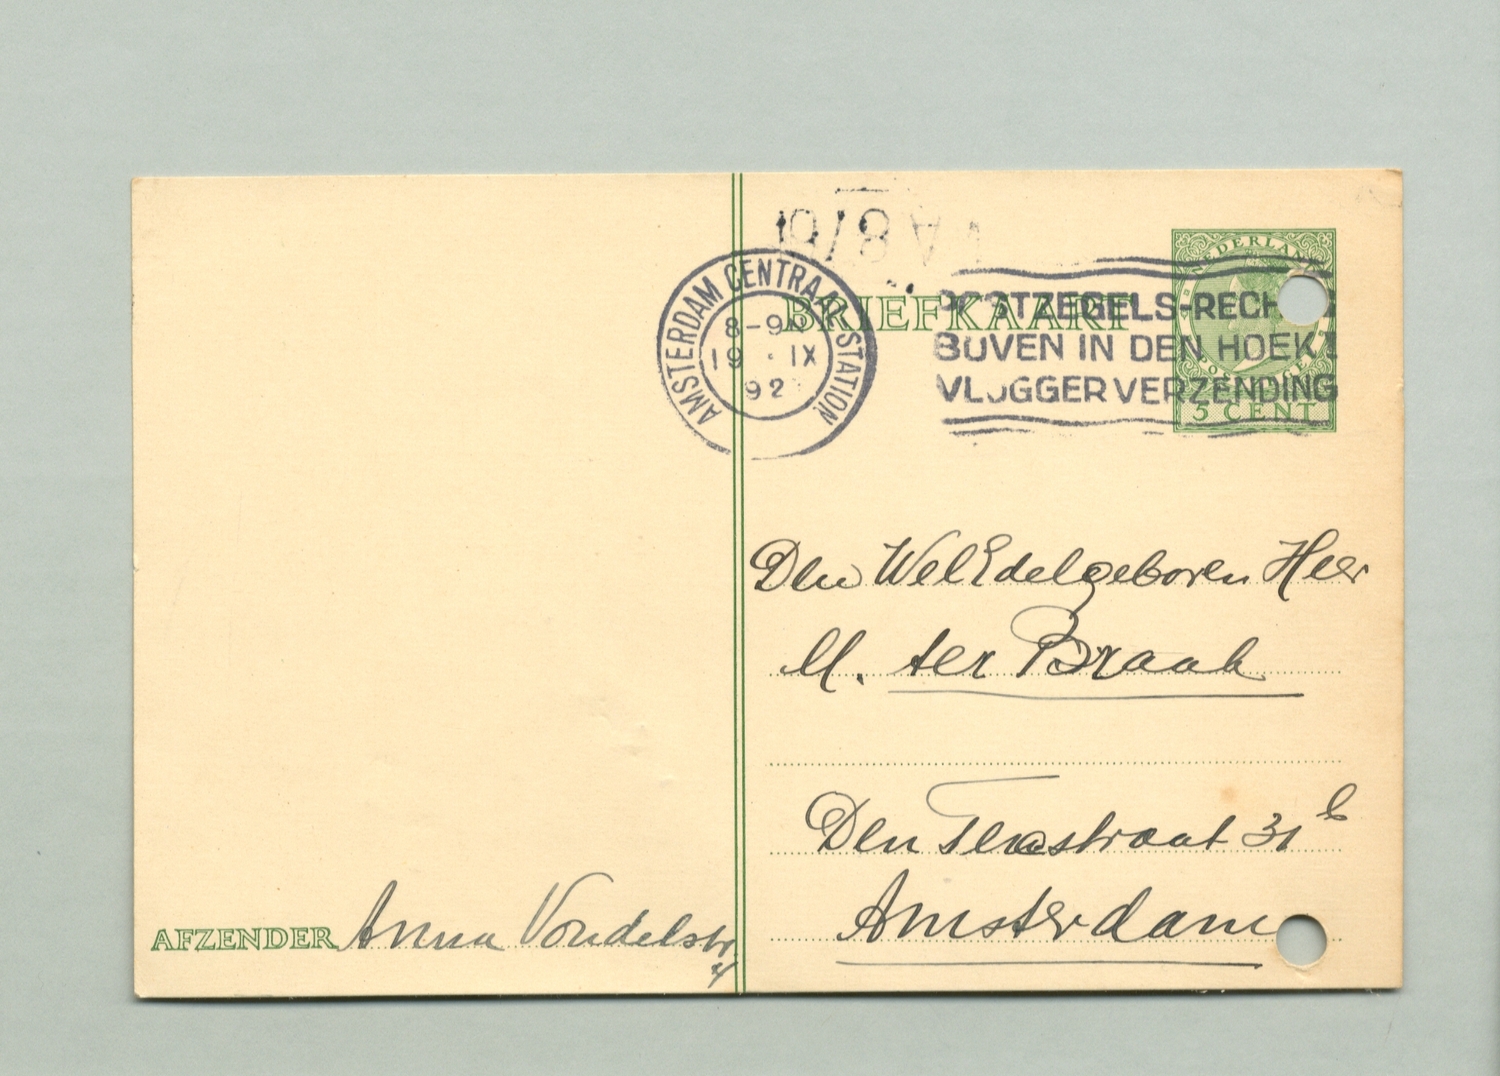 AMSTERDAM CENTRAAL STATION
19 IX
192
NEDERLAND
BRIEFKAART
POSTZEGELS-RECH
BOVEN IN DEN HOEK!
VLUGGER VERZENDING
5 CENT
Den WelEdelgeboren Heer
M. ter Braak
Den Texstraat 31 b
Amsterdam
AFZENDER Anna Vondelstr.